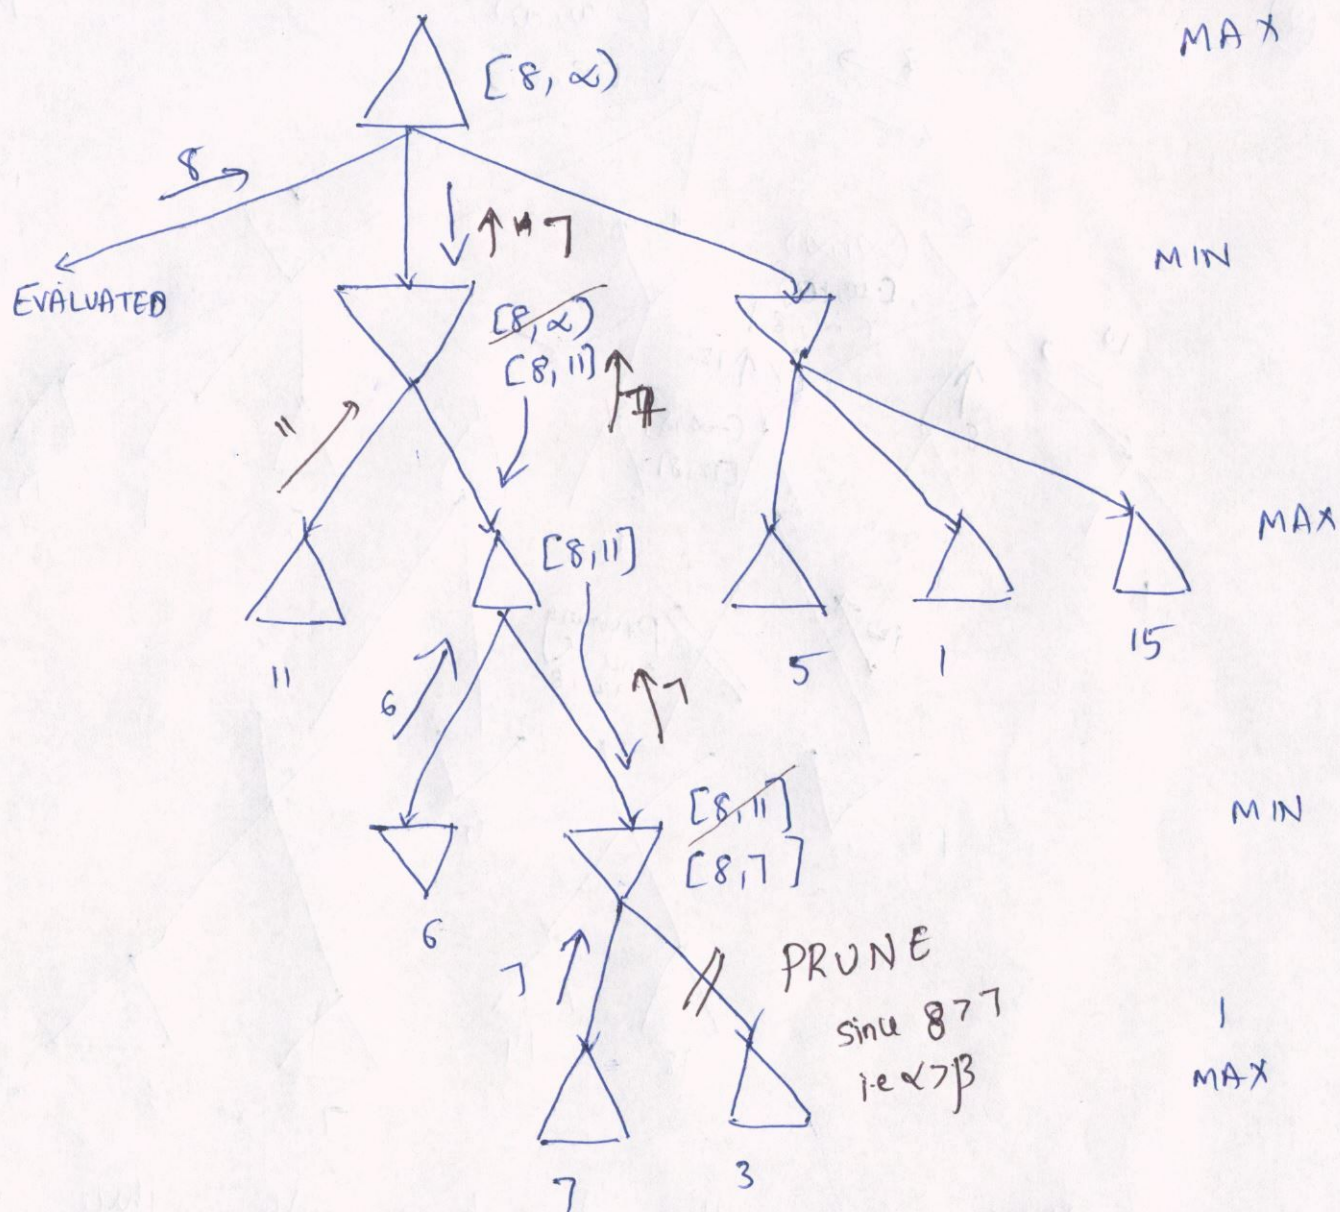 MAX
[8, ∝)
8
↑ 7
MIN
EVALUATED
[8, ∝)
[8, 11]
11
[8, 11]
MAX
11
5
1
15
6
7
[8, 11]
MIN
[8, 7]
6
7
PRUNE
since 8 > 7
i.e α > β
1
MAX
7
3